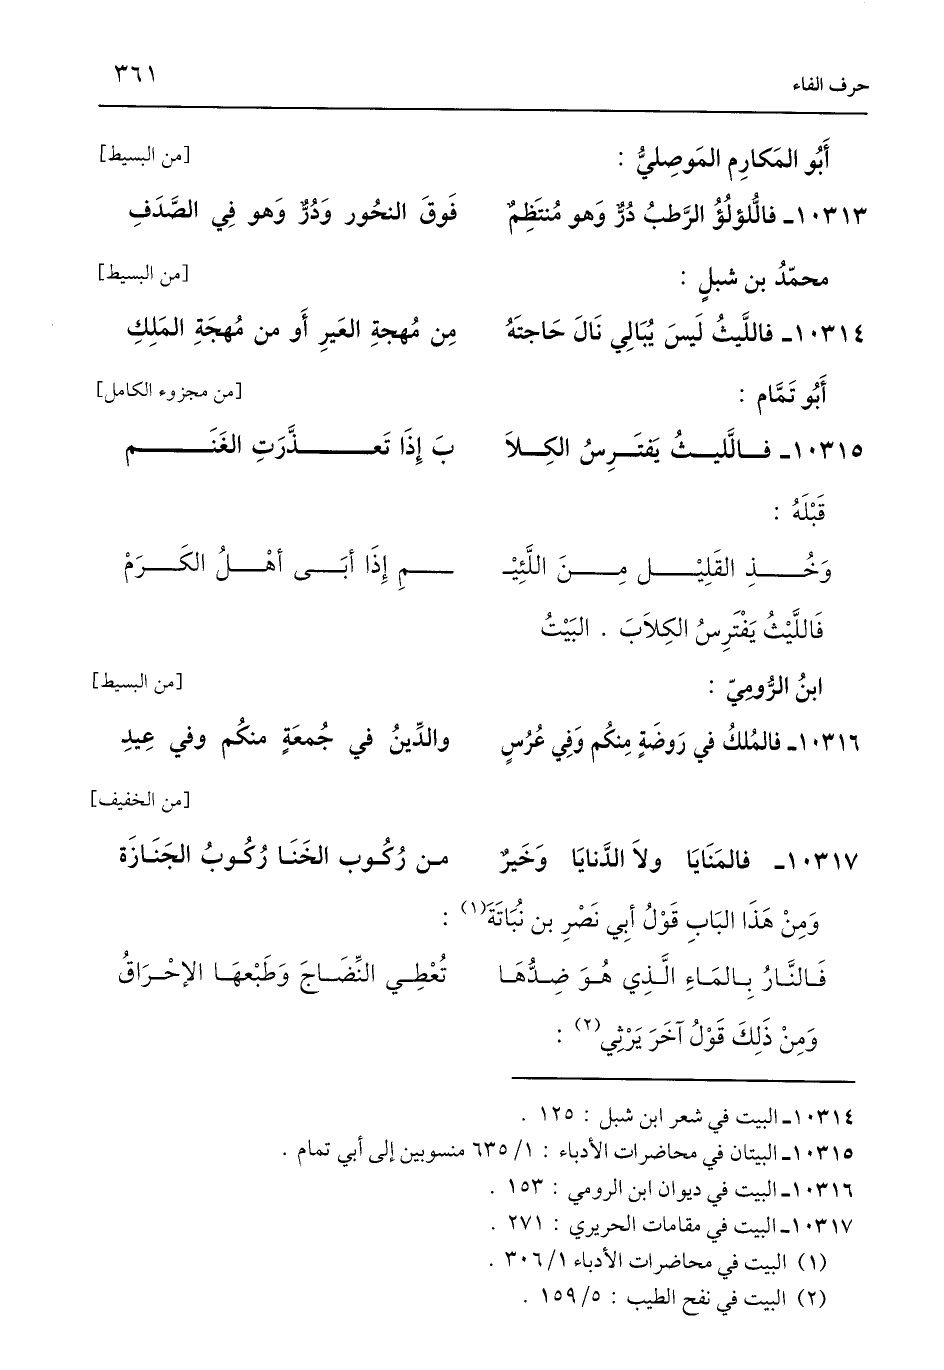 حرف الفاء ٣٦١
أَبُو المَكارِم المَوصِليُّ : [من البسيط]
١٠٣١٣ـ فاللُّؤلُؤُ الرَّطبُ دُرٌّ وَهو مُنتَظِمٌ فَوقَ النحُور وَدُرٌّ وَهو فِي الصَّدَفِ
محمّدُ بن شبلٍ : [من البسيط]
١٠٣١٤ـ فاللَّيثُ لَيسَ يُبَالِي نَالَ حَاجتَهُ مِن مُهجةِ العَيرِ أَو من مُهجَةِ المَلِكِ
أَبُو تَمَّام : [من مجزوء الكامل]
١٠٣١٥ـ فـالَّليـثُ يَفتَـرِسُ الكِـلاَ بَ إِذَا تَعـذَّرَتِ الغَنَـم
قَبْلَهُ :
وَخُـذِ القَلِيْـل مِـنَ اللَّئِيْـ ـمِ إِذَا أبَـى أهْـلُ الكَـرَمْ
فَاللَّيْثُ يَفْتَرِسُ الكِلاَبَ . البَيْتُ
ابنُ الرُّومِيّ : [من البسيط]
١٠٣١٦ـ فالمُلكُ في رَوضَةٍ مِنكُم وَفِي عُرُسٍ والدِّينُ في جُمعَةٍ منكُم وفي عِيدِ
[من الخفيف]
١٠٣١٧ـ فالمَنَايَا ولاَ الدَّنايَا وَخَيرٌ مـن رُكُـوب الخَنَـا رُكُوبُ الجَنَازَة
وَمِنْ هَذَا البَابِ قَوْلُ أبِي نَصْرِ بن نُبَاتَةَ(١) :
فَـالنَّـارُ بِـالمَـاءِ الَّـذِي هُـوَ ضِـدُّهَـا تُعْطِـي النِّضَـاجَ وَطَبْعهَـا الإحْـرَاقُ
وَمِنْ ذَلِكَ قَوْلُ آخَرَ يَرْثِي(٢) :
١٠٣١٤ـ البيت في شعر ابن شبل : ١٢٥ .
١٠٣١٥ـ البيتان في محاضرات الأدباء : ١/ ٦٣٥ منسوبين إلى أبي تمام .
١٠٣١٦ـ البيت في ديوان ابن الرومي : ١٥٣ .
١٠٣١٧ـ البيت في مقامات الحريري : ٢٧١ .
(١) البيت في محاضرات الأدباء ١/ ٣٠٦ .
(٢) البيت في نفح الطيب : ٥/ ١٥٩ .